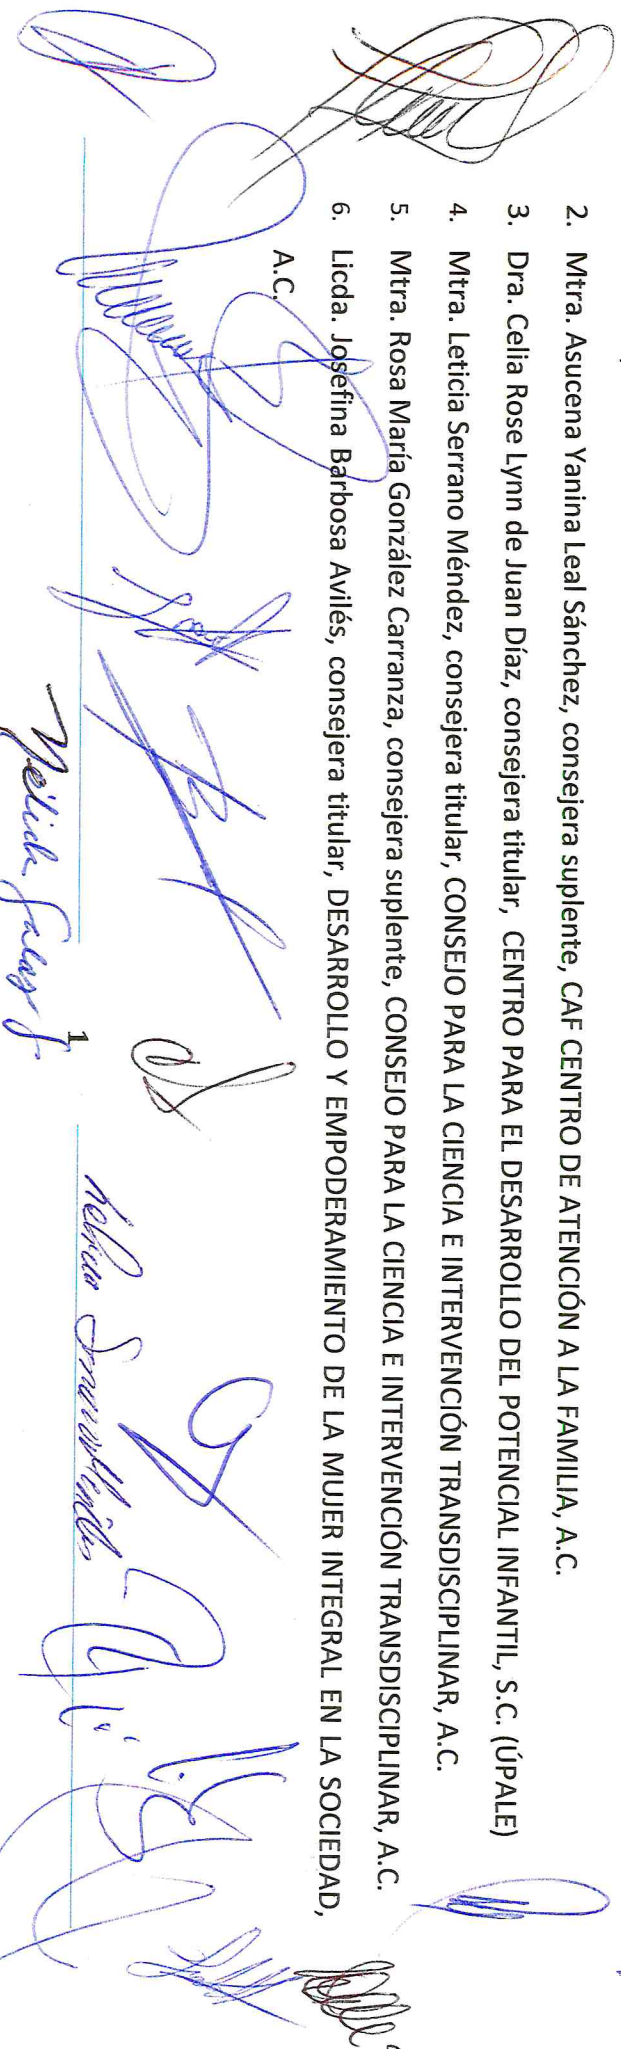 2. Mtra. Asucena Yanina Leal Sánchez, consejera suplente, CAF CENTRO DE ATENCIÓN A LA FAMILIA, A.C.
3. Dra. Celia Rose Lynn de Juan Díaz, consejera titular, CENTRO PARA EL DESARROLLO DEL POTENCIAL INFANTIL, S.C. (ÚPALE)
4. Mtra. Leticia Serrano Méndez, consejera titular, CONSEJO PARA LA CIENCIA E INTERVENCIÓN TRANSDISCIPLINAR, A.C.
5. Mtra. Rosa María González Carranza, consejera suplente, CONSEJO PARA LA CIENCIA E INTERVENCIÓN TRANSDISCIPLINAR, A.C.
6. Licda. Josefina Barbosa Avilés, consejera titular, DESARROLLO Y EMPODERAMIENTO DE LA MUJER INTEGRAL EN LA SOCIEDAD,
A.C.
1